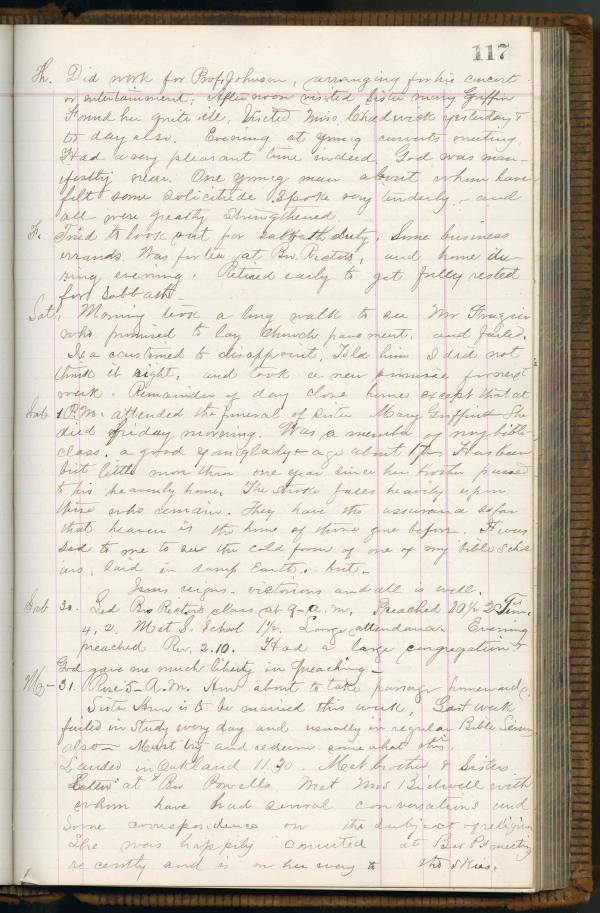 117
Th. Did work for Prof Johnson, arranging for his concert
or entertainment; Afternoon visited sister Mary Griffin
Found her quite ill. Visited Miss. Chadwick yesterday &
to day also. Evening at young converts meeting.
Had a very pleasant time indeed God was man-
ifestly near. One young man about whom have
felt some solicitude Spoke very tenderly - and
all were greatly strengthened.
F. Tried to look out for sabbath duty. Some business
errands. Was for tea at Bro. Rectors, and home du-
ring evening. Retired early to get fully rested
for Sabbath -
Sat, Morning took a long walk to see Mr
who promised to lay church pavement, and failed.
Is accustomed to disappoint, Told him I did not
think it right, and took a new promise for next
week. Remainder of day close home except that at
Sab 1 P.M. attended the funeral of sister Mary Griffin - She
died Friday morning. Was a member of my bible-
class. a good young lady - age about 17 - Has been
but little more than one year since her brother passed
to his heavenly home. The stroke falls heavily upon
those who remain. They have the assurance so far
that heaven is the home of those gone before. It was
sad to me to see the cold form of one of my bible scho
lars, laid in damp Earth. but -
Jesus reigns - victorious and all is well.
Sab 30. Led Bro Rectors class at 9 - a. m. Preached 10 1/2 2 Tim.
4, 2. Met S. School 1 1/2. Large attendance. Evening
preached Rev. 2.10. Had a large congregation &
God gave me much liberty in preaching -
M - 31. Rose 5 - A.M. Am about to take passage homeward.
Sister Ann is to be married this week, Last week
failed in study every day and usually in regular Bible
also - Must try and redeem somewhat this.
Landed in Oakland 11.30. Met brother & Sisters
at Bro Powells. Met Miss Bidwell with
whom have had several conversations and
some correspondence on the subject of religion
She was happily converted at Bro P's meeting
recently and is on her way to the skies.